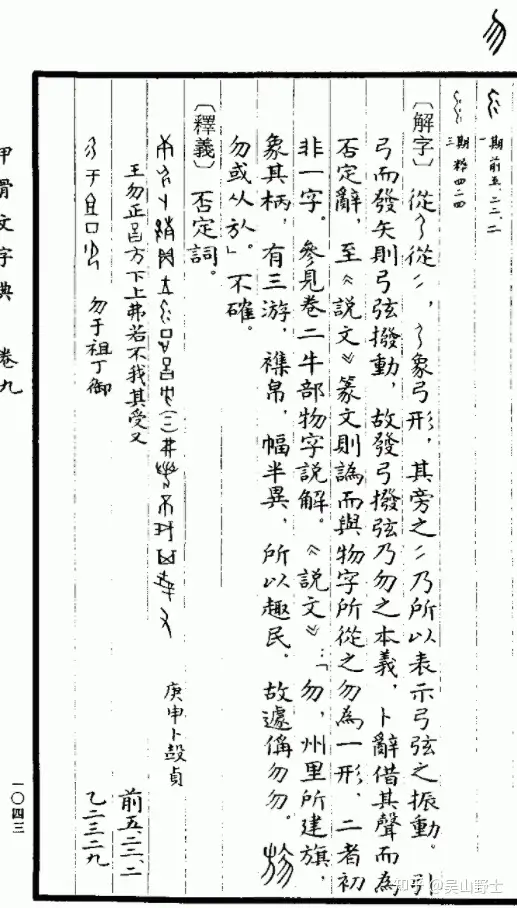 一期 前五.二二.二
三期 粹四二四
〔解字〕從 從 , 象弓形,其旁之 乃所以表示弓弦之振動。引
弓而發矢則弓弦撥動,故發弓撥弦乃勿之本義,卜辭借其聲而為
否定辭,至《說文》篆文則譌而與物字所從之勿為一形,二者初
非一字。參見卷二牛部物字說解。《說文》:「勿,州里所建旗,
象其柄,有三游,襍帛,幅半異,所以趣民,故遽稱勿勿。
勿或从於」。不確。
〔釋義〕否定詞。
庚申卜㱿貞
王勿正 方下上弗若不我其受又 前五.二二.二
勿于祖丁御 乙二三二九
甲骨文字典 卷九
一〇四三
知乎 @吴山野士